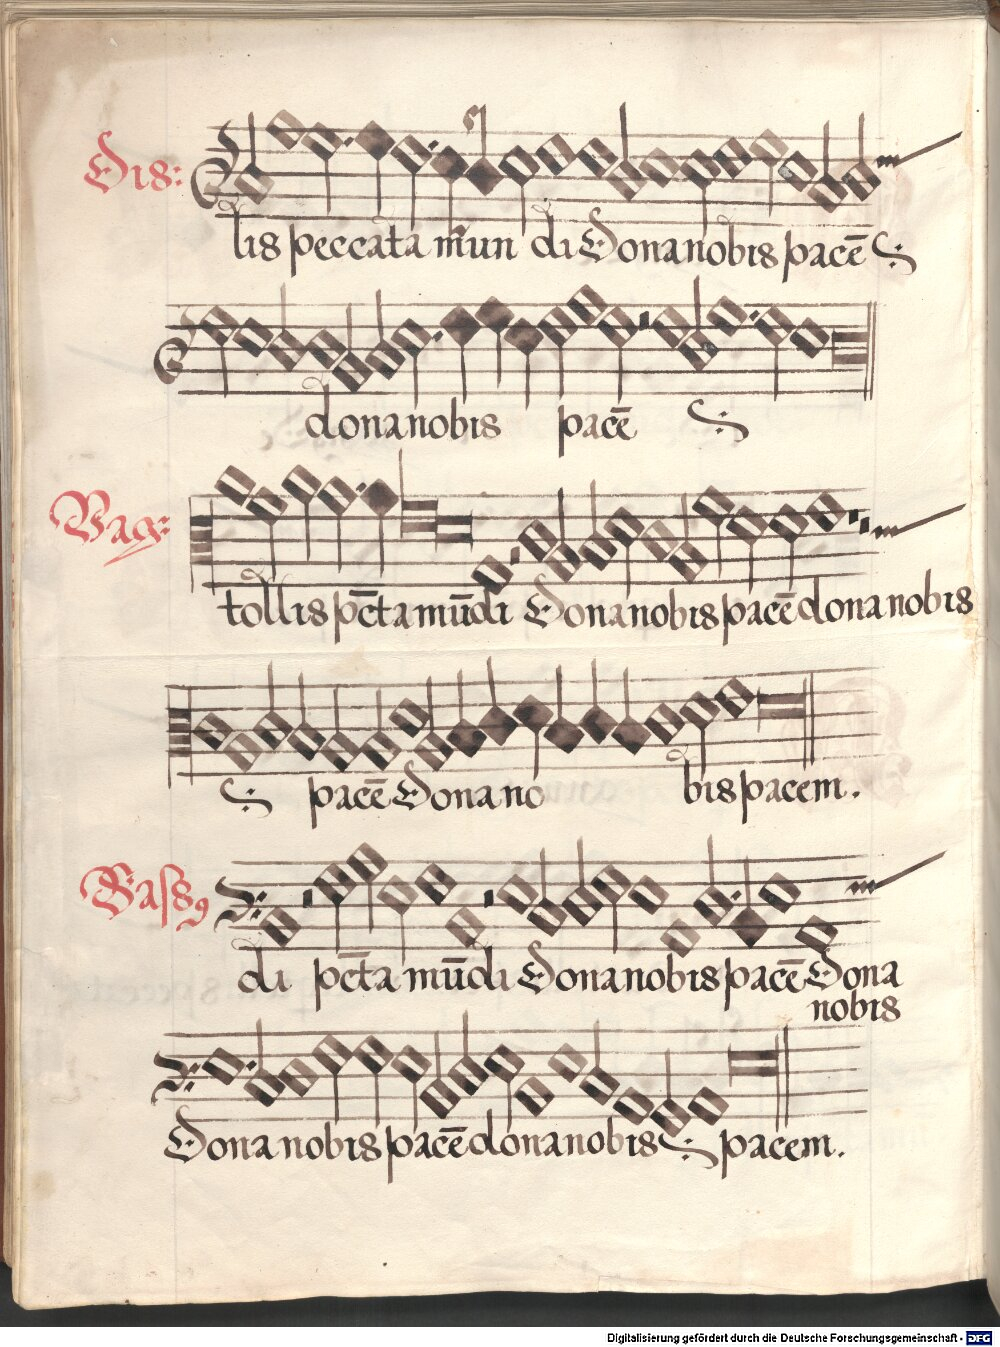 Dis:
lis peccata mun di Dona nobis pacē
dona nobis pacē
Vag:
tollis pc̄ta mūdi Dona nobis pacē dona nobis
pacē Dona no bis pacem.
Bassꝯ
di pc̄ta mūdi Dona nobis pacē Dona
nobis
Dona nobis pacē dona nobis pacem.
Digitalisierung gefördert durch die Deutsche Forschungsgemeinschaft - DFG